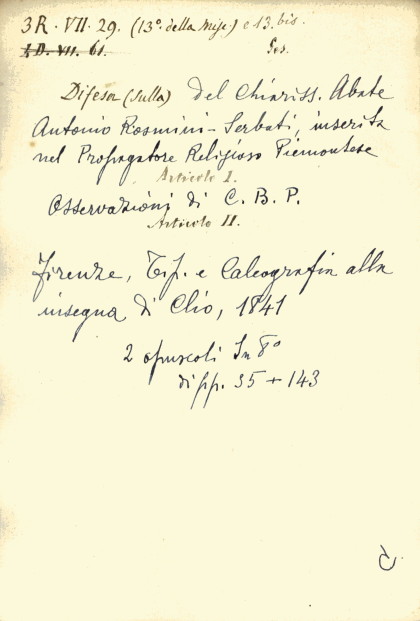 3R. VII. 29. (13º. della Misc.) e 13. bis.
4. D. VII. 61. Ges.
Difesa (sulla) del Chiariss. Abate
Antonio Rosmini-Serbati, inserita
nel Propagatore Religioso Piemontese
Articolo I.
Osservazioni di C. B. P.
Articolo II.
Firenze, Tip. e Calcografia alla
insegna di Clio, 1841
2 opuscoli In 8º
di pp. 35 + 143